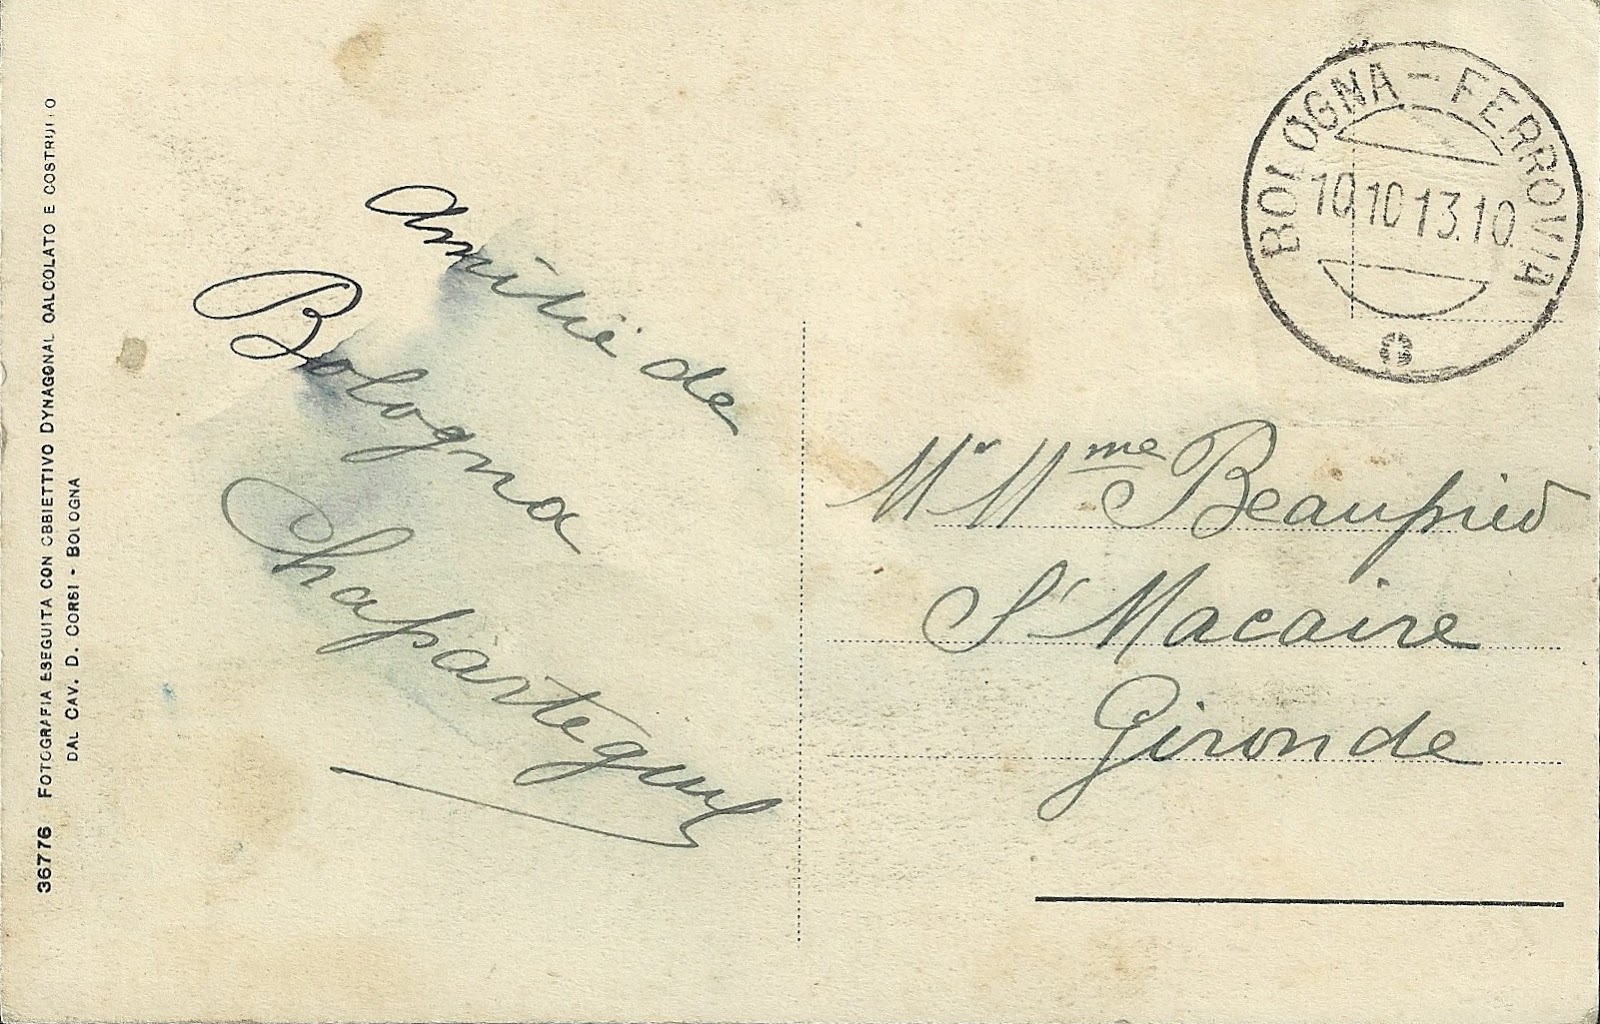 36776 FOTOGRAFIA ESEGUITA CON OBBIETTIVO DYNAGONAL CALCOLATO E COSTRUITO
DAL CAV. D. CORSI - BOLOGNA
Amitié de
Bologna
BOLOGNA - FERROVIA
10.10 13.10
Mr Mme Beaupied
St Macaire
Gironde